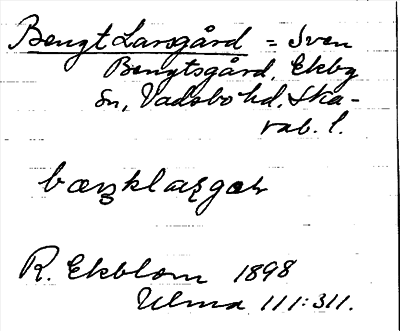 Bengt Larsgård = Sven
Bengtsgård, Ekby
sn, Vadsbo hd, Ska-
rab. l.
R. Ekblom 1898
Ulma 111:311.